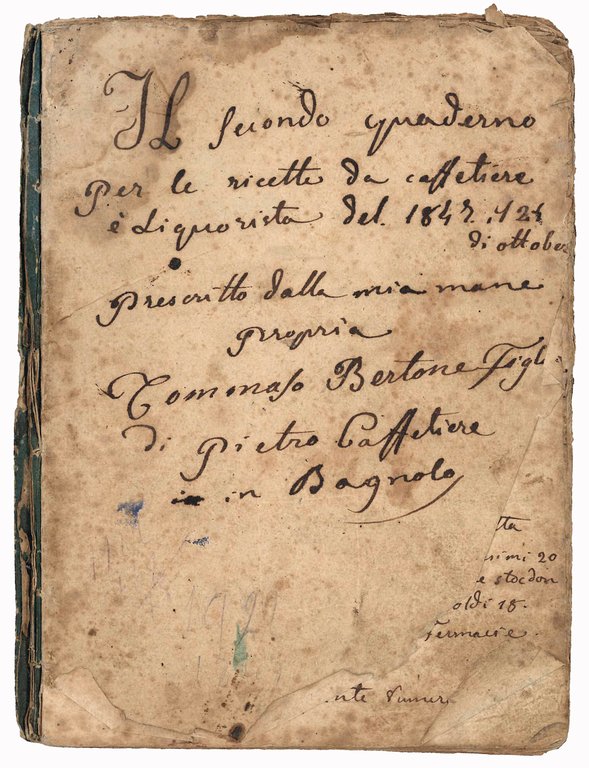 Il secondo quaderno
Per le ricette da caffetiere
è Liquorista del. 1847
di ottober
Prescritto dalla mia mane
Propria
Tommaso Bertone Figl
di Pietro Caffetiere
in Bagnolo
tta
simi 20
e stocdon
oldi 18.
Fermacie.